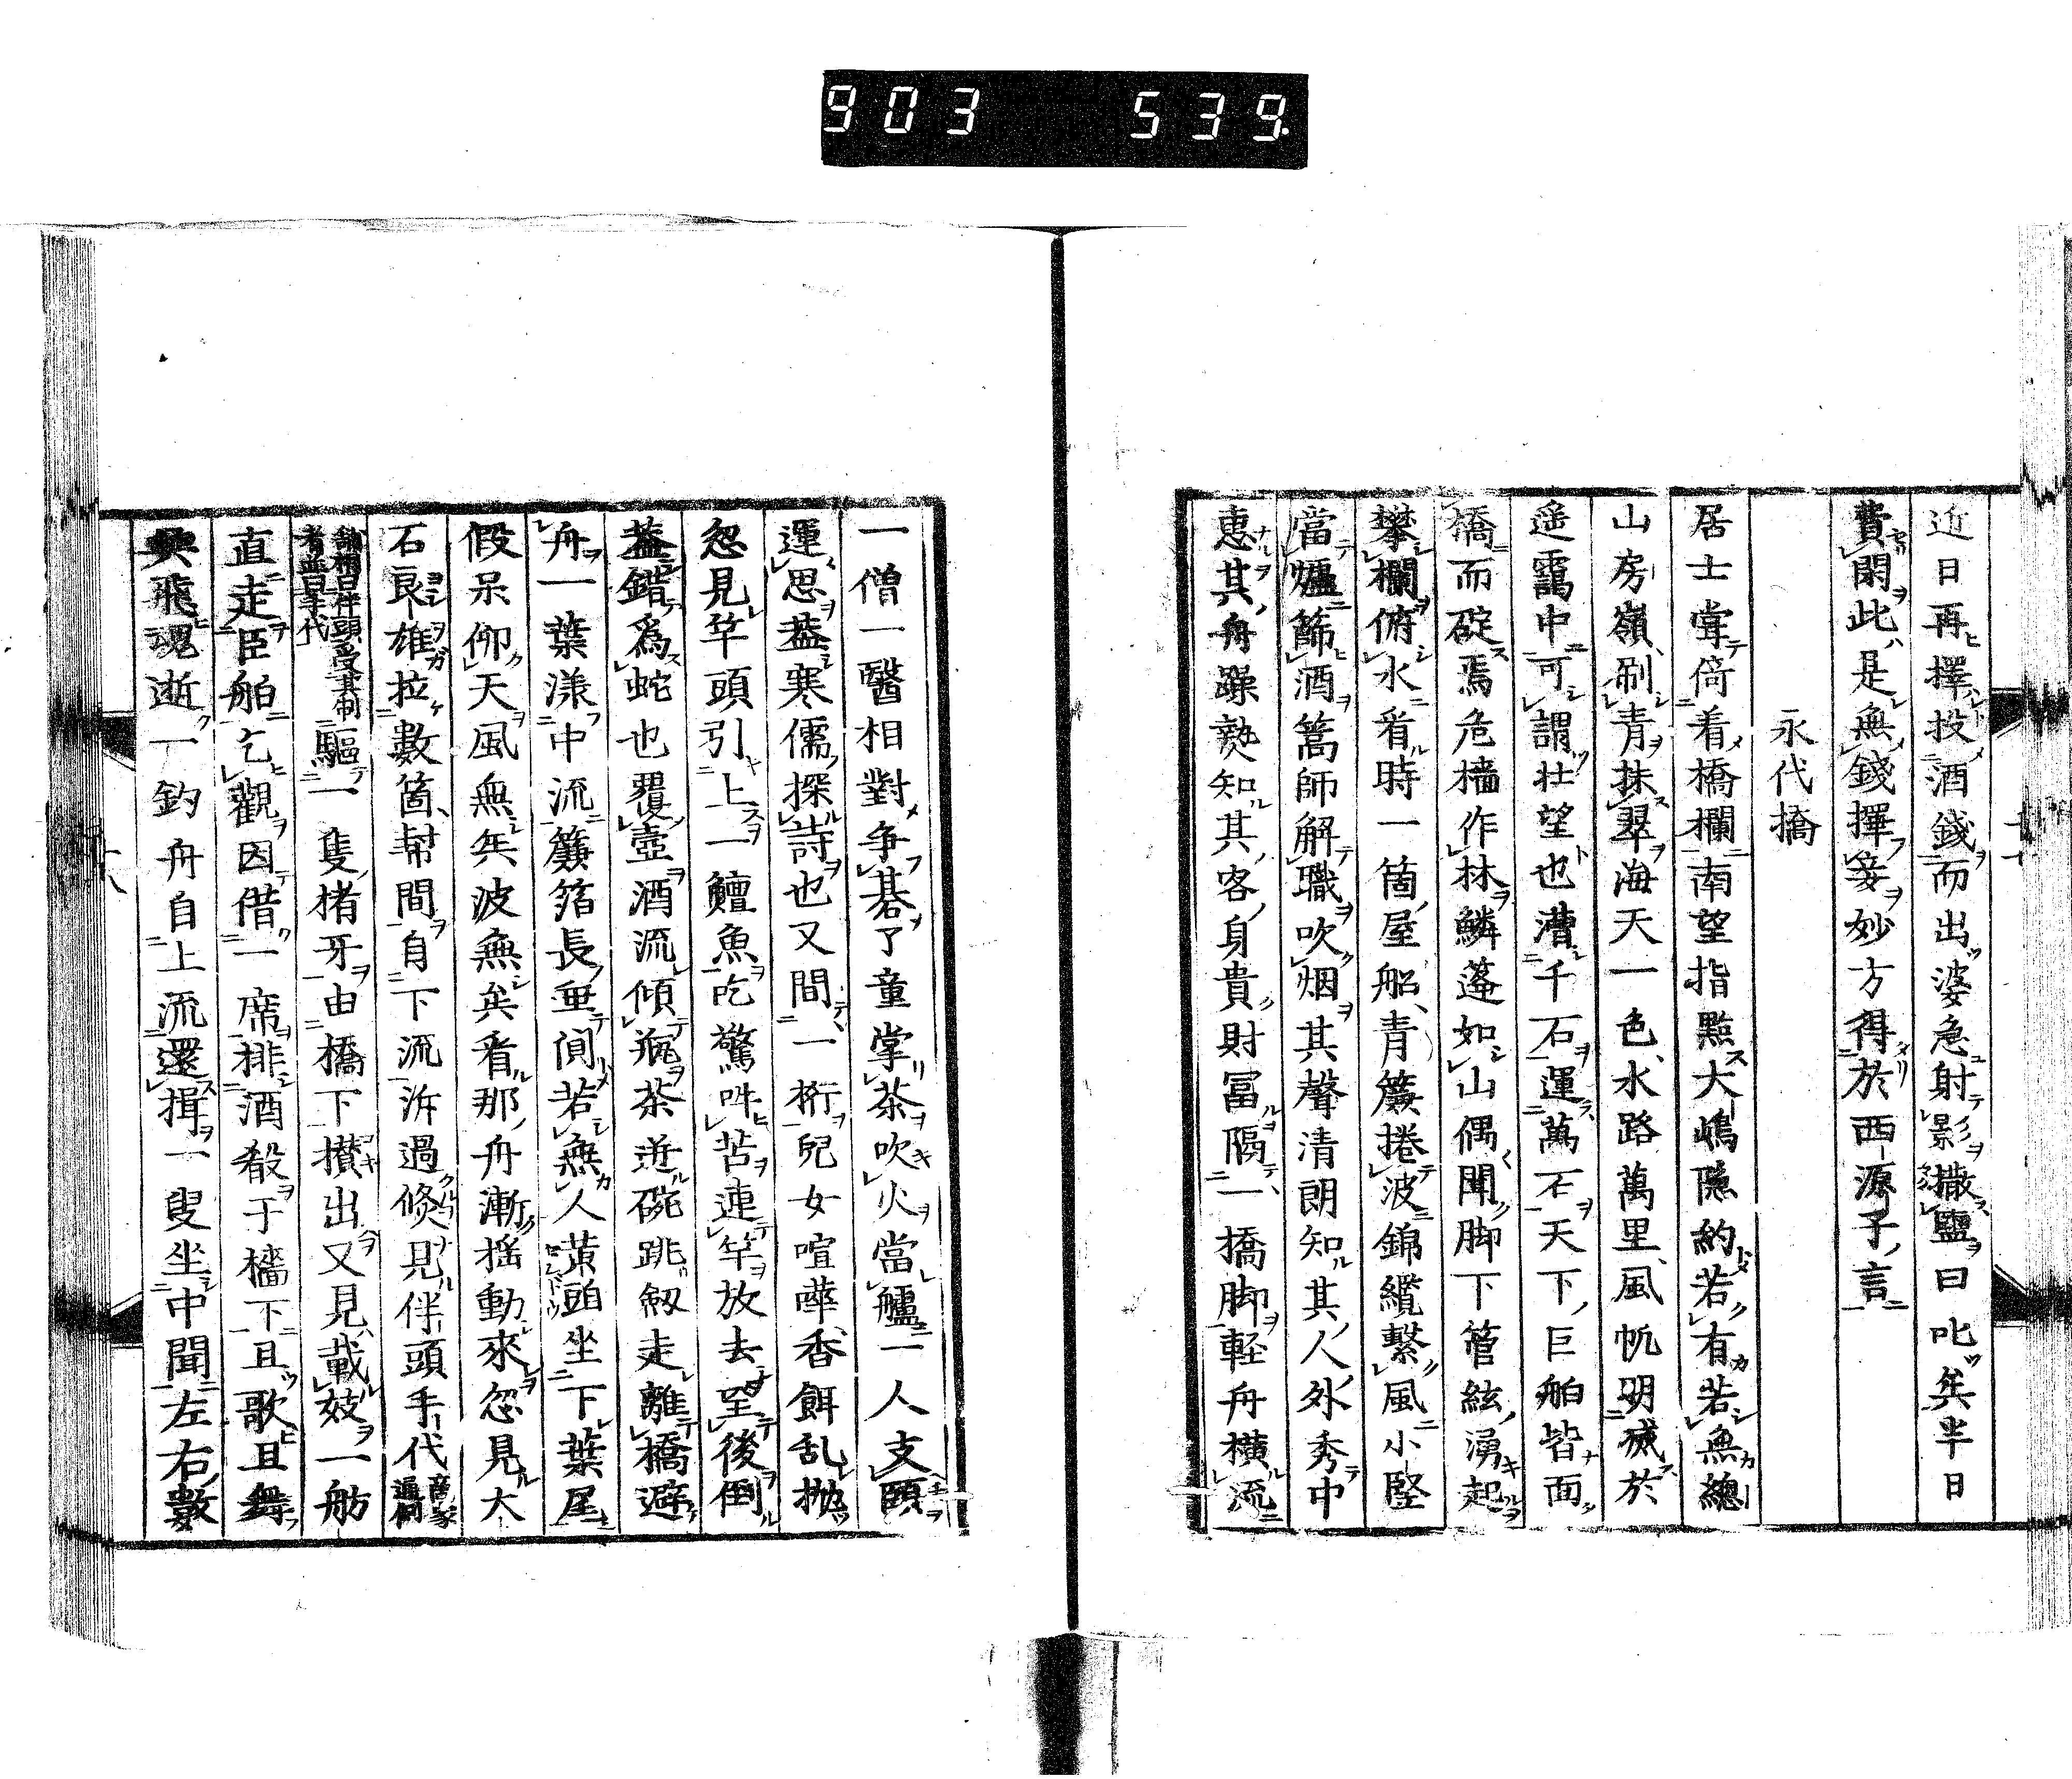 903 539.
近日再擇投酒錢而出婆急射影撒鹽曰叱矣半日
費閑此是無錢擇妾妙方得於西源子言
永代橋
居士嘗倚看橋欄南望指點大嶋隱約若有若無總
山房嶺刷青抹翠海天一色水路萬里風帆明滅於
遥靄中可謂壮望也漕千石運萬石天下巨舶皆面
橋而碇焉危檣作林鱗蓬如山偶聞脚下管絃湧起
攀欄俯水看時一箇屋船青簾捲波錦纜繫風小竪
當爐篩酒篙師解職吹烟其聲清朗知其人外秀中
惠其舟躁熟知其客身貴財冨隔一橋脚軽舟横流
一僧一醫相對争棊了童掌茶吹火當艫一人支頤
運思蓋寒儒探詩也又間一桁兒女喧嘩香餌乱抛
忽見竿頭引上一鱣魚吃驚呌苦連竿放去望後倒
蓋錯爲蛇也覆壺酒流傾瓶茶迸碗跳劔走離橋避
舟一葉漾中流簾箔長垂閴若無人黄頭坐下葉尾
假呆仰天風無矣波無矣看那舟漸揺動來忽見大
石良雄拉數箇幇間自下流泝過倐見伴頭手代
驅一隻楮牙由橋下攅出又見載妓一舫
直走臣舶乞觀因借一席排酒殽于檣下且歌且舞
興飛魂逝一釣舟自上流還揖一叟坐中聞左右數